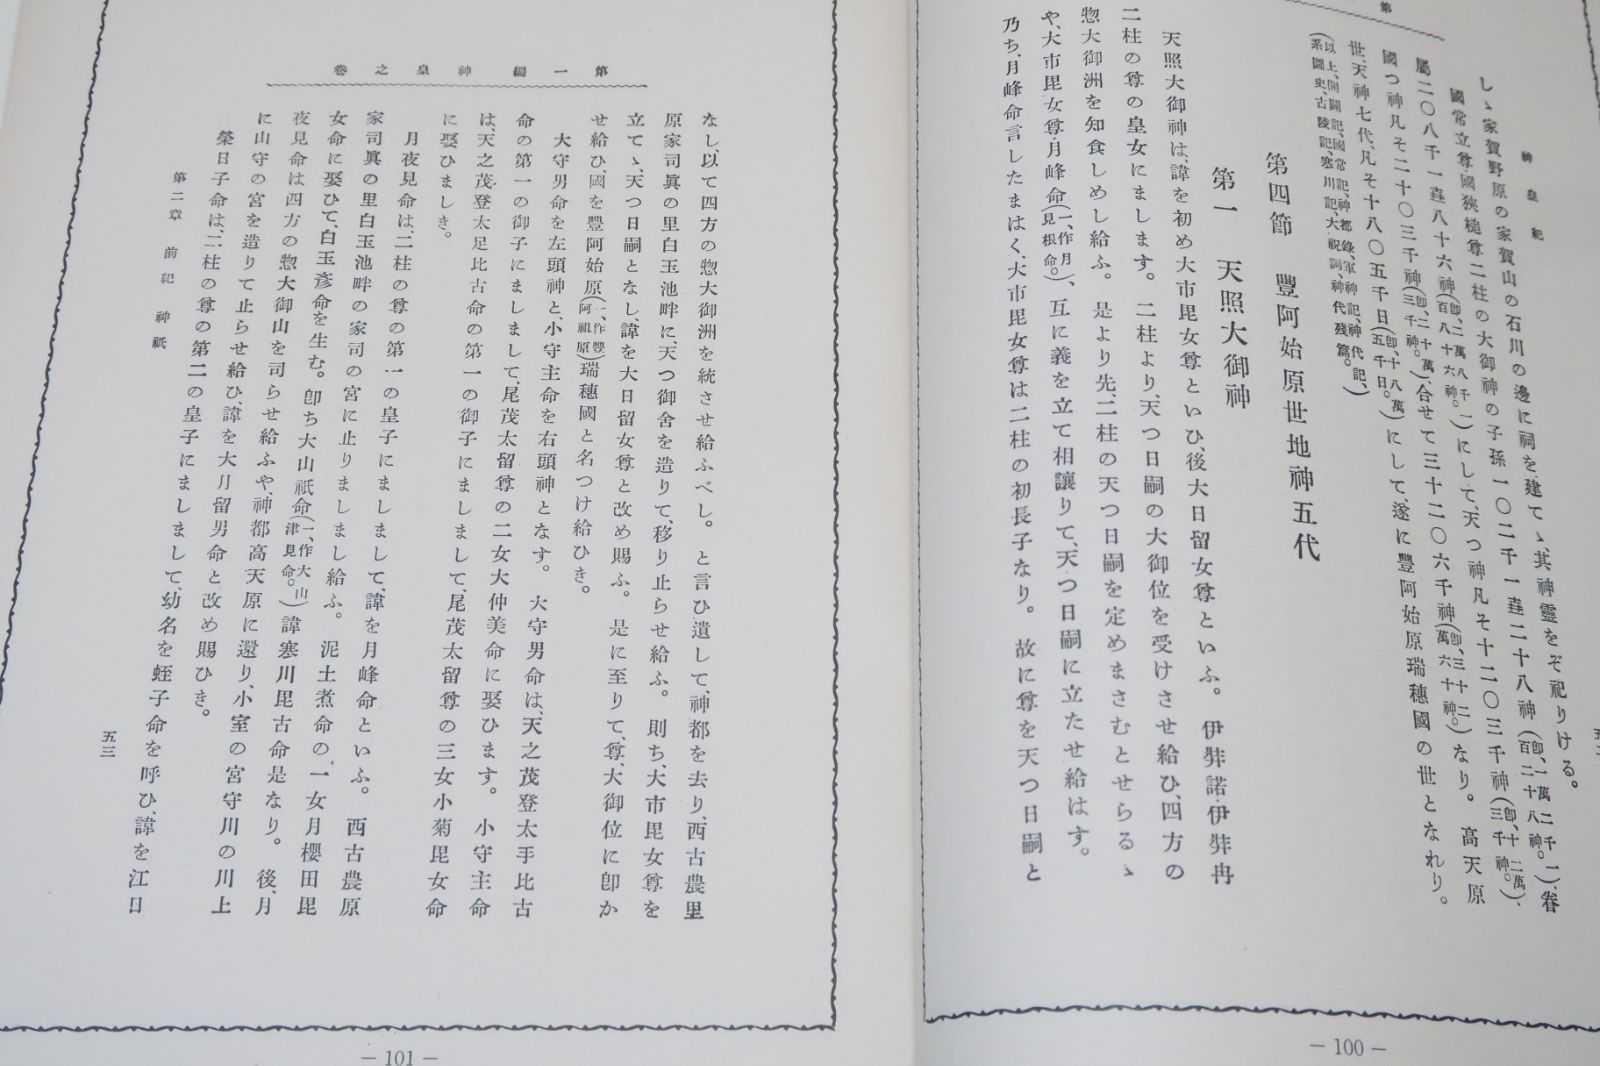 神皇紀
しゝ家賀野原の家賀山の石川の邊に祠を建てゝ、其神靈をぞ祀りける。
國常立尊・國狹槌尊二柱の大御神の子孫一〇二千一垚二十八神(卽、一萬二千一百二十八神。)、眷
屬二〇八千一垚八十六神(卽、二萬八千一百八十六神。)にして、天つ神凡そ十二〇三千神(卽、十二萬三千神。)、
國つ神凡そ二十〇三千神(卽、二十萬三千神。)、合せて三十二〇六千神(卽、三十二萬六千神。)なり。高天原
世、天神七代、凡そ十八〇五千日(卽、十八萬五千日。)にして、遂に豐阿始原瑞穗國の世となれり。
(以上、開闢記、國常記、神都錄、軍神記、神代記、系圖史、古陵記、寒川記、大祝詞、神代殘篇。)
第四節 豐阿始原世地神五代
第一 天照大御神
天照大御神は、諱を初め大市毘女尊といひ、後大日留女尊といふ。伊弉諾・伊弉冉
二柱の尊の皇女にまします。二柱より、天つ日嗣の大御位を受けさせ給ひ、四方の
惣大御洲を知食しめし給ふ。是より先、二柱の天つ日嗣を定めまさむとせらるゝ
や、大市毘女尊・月峰命(一、作月見根命。)、互に義を立て相讓りて、天つ日嗣に立たせ給はす。
乃ち、月峰命言したまはく、大市毘女尊は二柱の初長子なり。故に尊を天つ日嗣と
— 100 —
第一編 神皇之卷
なし、以て四方の惣大御洲を統させ給ふべし。と言ひ遺して、神都を去り、西古農里
原家司眞の里白玉池畔に、天つ御舍を造りて、移り止らせ給ふ。則ち、大市毘女尊を
立てゝ、天つ日嗣となし、諱を大日留女尊と改め賜ふ。是に至りて、尊、大御位に卽か
せ給ひ、國を豐阿始原(一、作豐阿祖原)瑞穗國と名つけ給ひき。
大守男命を左頭神と、小守主命を右頭神となす。大守男命は、天之茂登太手比古
命の第一の御子にましまして、尾茂太留尊の二女大仲美命に娶ひます。小守主命
は、天之茂登太足比古命の第一の御子にましまして、尾茂太留尊の三女小菊毘女命
に娶ひましき。
月夜見命は、二柱の尊の第一の皇子にましまして、諱を月峰命といふ。西古農原
家司眞の里白玉池畔の家司の宮に止りましまし給ふ。泥土煮命の一女月櫻田毘
女命に娶ひて、白玉彥命を生む。卽ち大山祇命(一、作大山津見命。)諱寒川毘古命是なり。後、月
夜見命は四方の惣大御山を司らせ給ふや、神都高天原に還り、小室の宮守川の川上
に山守の宮を造りて止らせ給ひ、諱を大月留男命と改め賜ひき。
榮日子命は、二柱の尊の第二の皇子にましまして、幼名を蛭子命を呼ひ、諱を江日
第二章 前紀 神祇
五三
— 101 —